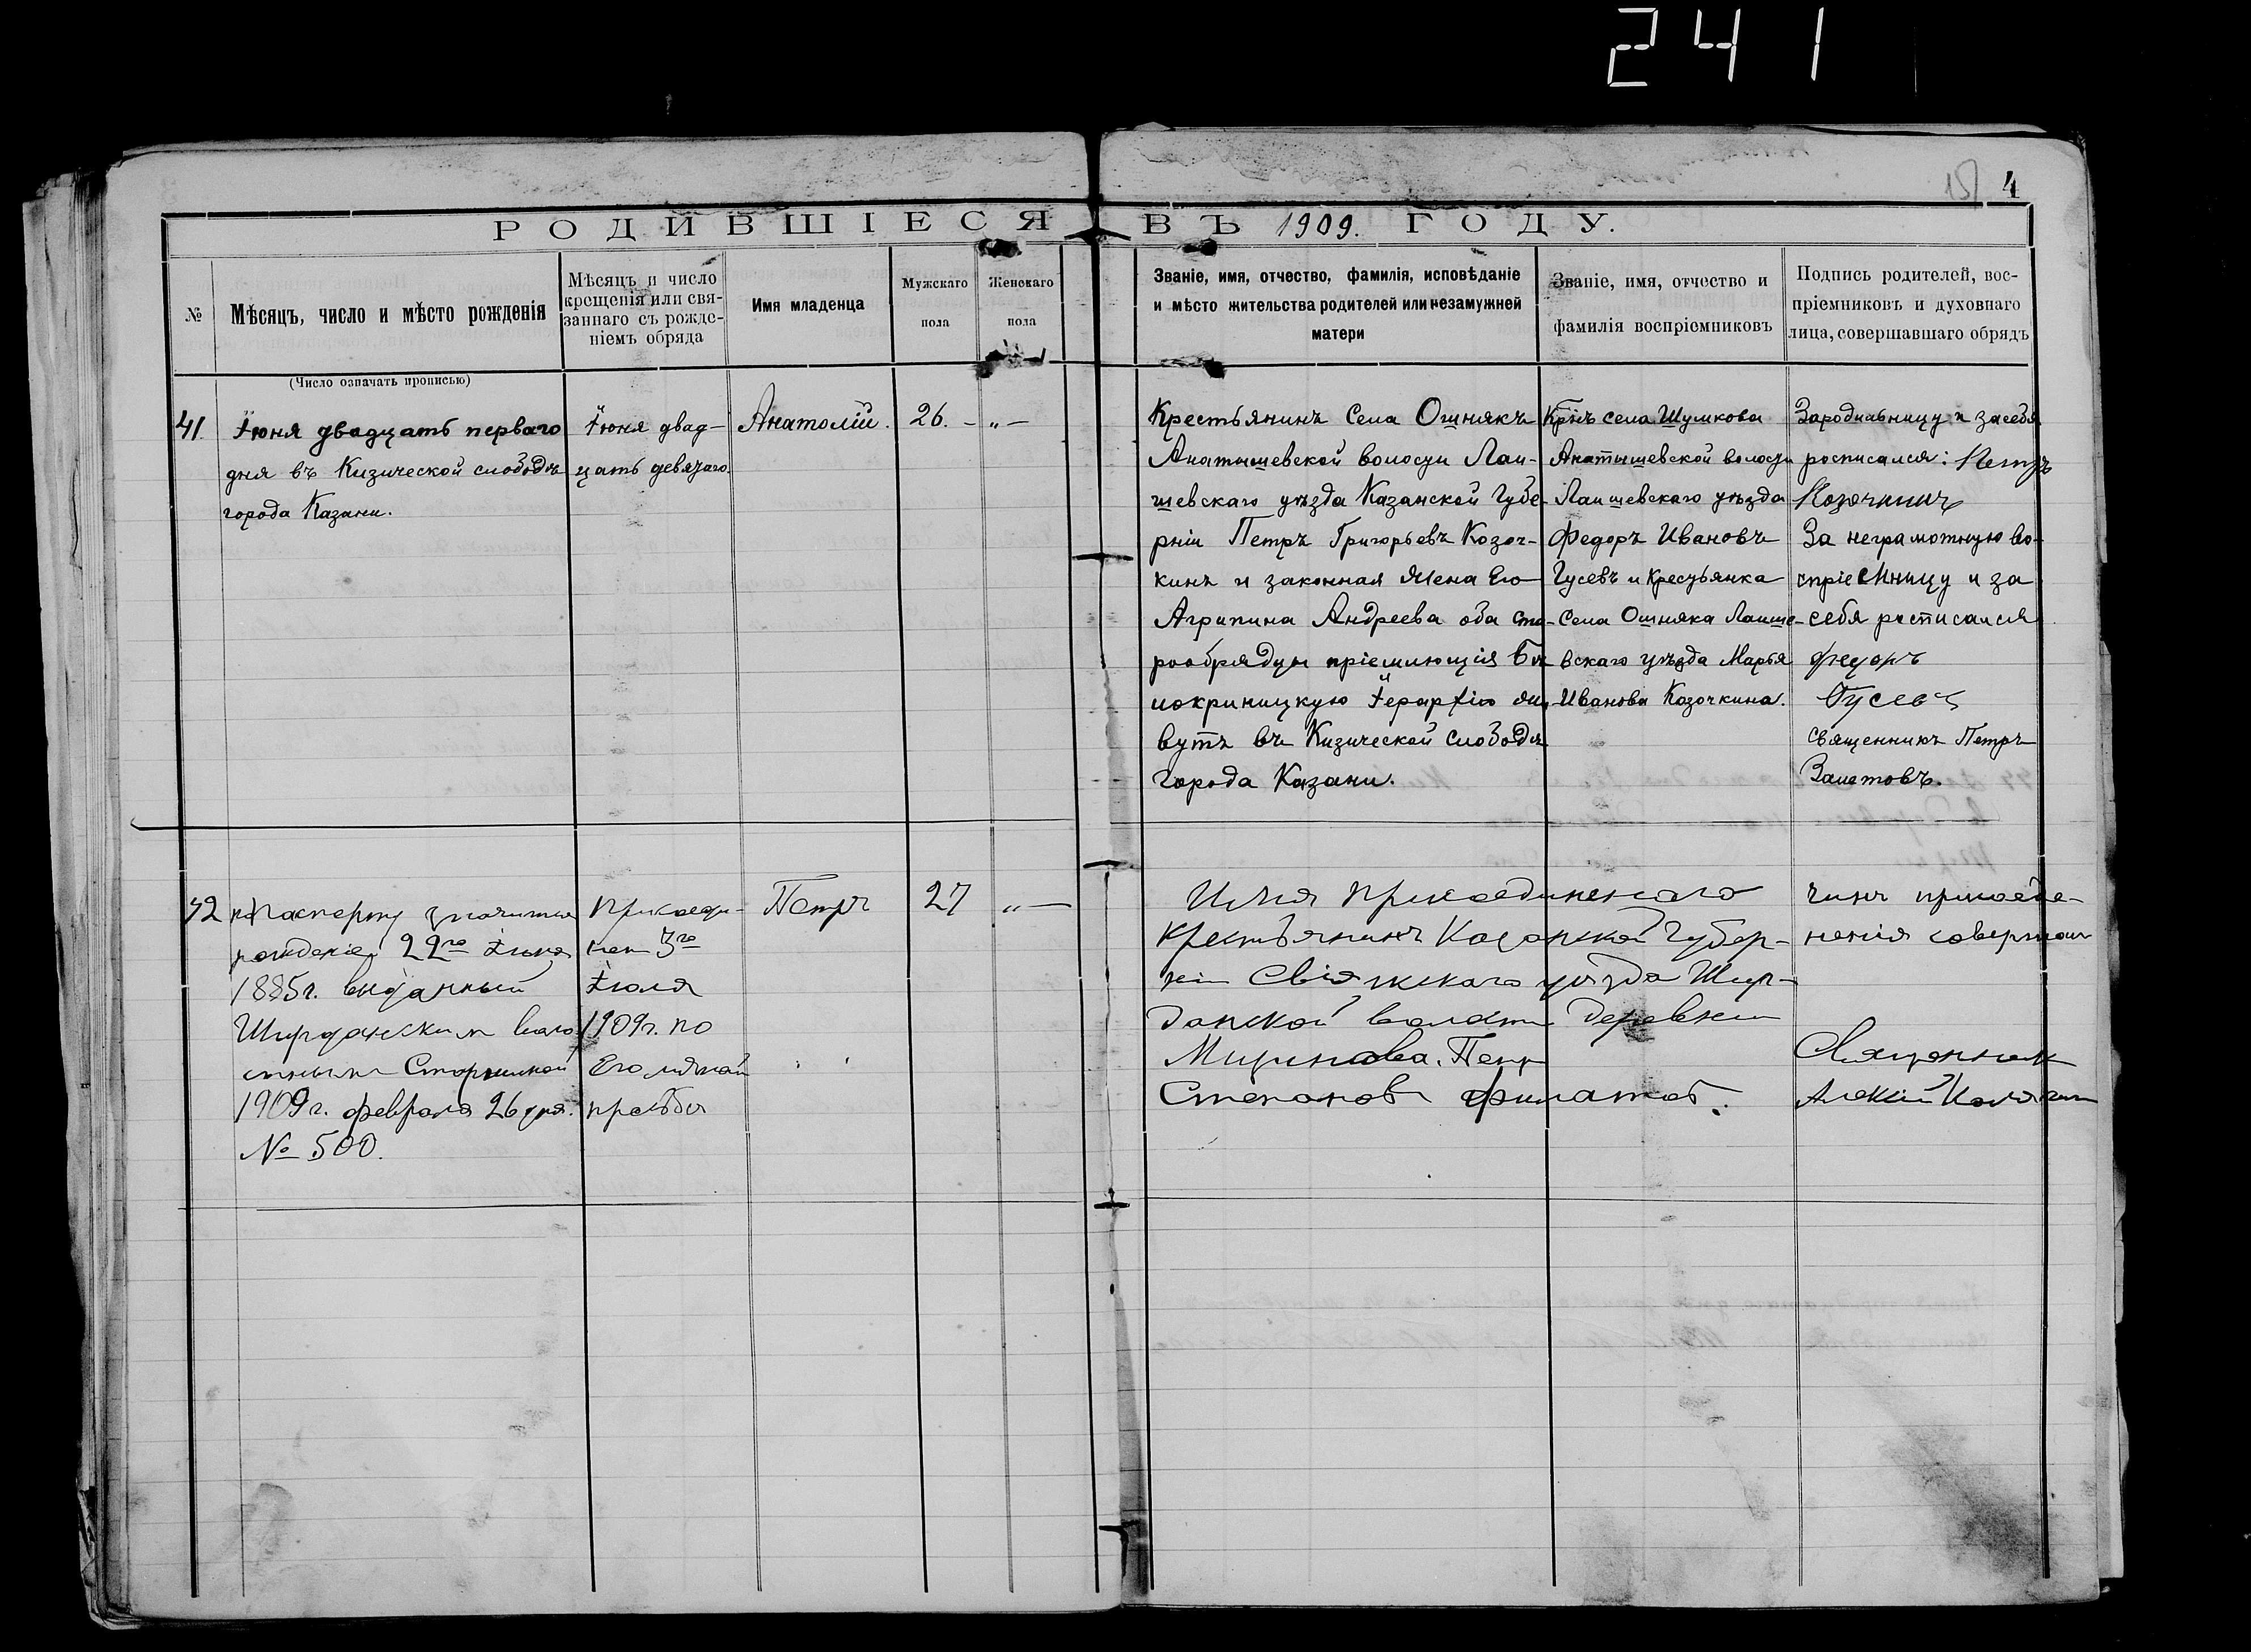 241
157 4
РОДИВШІЕСЯ ВЪ 1909. ГОДУ.
№
Мѣсяцъ, число и мѣсто рожденія
Мѣсяцъ и число
крещенія или свя-
заннаго съ рожде-
ніемъ обряда
Имя младенца
Мужскаго
пола
Женскаго
пола
Званіе, имя, отчество, фамилія, исповѣданіе
и мѣсто жительства родителей или незамужней
матери
Званіе, имя, отчество и
фамилія воспріемниковъ
Подпись родителей, вос-
пріемниковъ и духовнаго
лица, совершавшаго обрядъ
(Число означать прописью)
41.
Іюня двадцать перваго
дня въ Кизической слободѣ
города Казани.
Іюня двад-
цать девятаго.
Анатолій.
26. -
„ -
Крестьянинъ Села Ошнякъ
Анатышевской волости Лаи-
шевскаго уѣзда Казанской Губе-
рніи Петръ Григорьевъ Козоч-
кинъ и законная Жена Его
Агрипина Андреева оба ста-
рообрядцы пріемлющія Бѣ
локриницкую Іерархію жи-
вутъ въ Кизической Слободѣ
Города Казани.
Кр̅нъ села Шумкова
Анатышевской волости
Лаишевскаго уѣзда
Федоръ Ивановъ
Гусевъ и Крестьянка
Села Ошняка Лаише-
вскаго уѣзда Марья
Иванова Козочкина.
За родильницу и за себя
росписался: Петръ
Козочкинъ
За неграмотную во-
спріемницу и за
себя росписался
Федоръ
Гусевъ
Священникъ Петръ
Залетовъ.
42
по Паспорту значится
рожденіе 22го Іюня
1885 г. выданный
Ширданским воло
стнымъ Старшиной
1909 г. февраля 26 дня.
№ 500.
Присоеди-
нен 3го
Іюля
1909 г. по
Его личной
прозьбы
Петръ
27
„ —
Имя присоединенаго
Крестьянинъ Казанской Губер-
ніи Свіяжскаго уѣзда Шир-
данской волости Деревни
Петр
Степановъ Филатов.
чинъ присоеде-
ненія совершалъ
Священник
Алексій